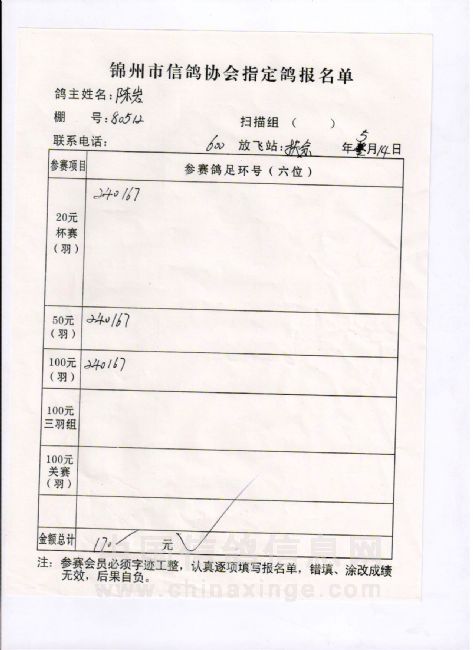 锦州市信鸽协会指定鸽报名单
鸽主姓名：陈岩
棚 号：80512
扫描组（ ）
联系电话： 600 放飞站： 年 5月14日
参赛项目 参赛鸽足环号（六位）
20元杯赛（羽） 240167
50元（羽） 240167
100元（羽） 240167
100元三羽组
100元关赛（羽）
金额总计 170 元
注：参赛会员必须字迹工整，认真逐项填写报名单，错填、涂改成绩
无效，后果自负。
中国信鸽信息网
www.chinaxinge.com